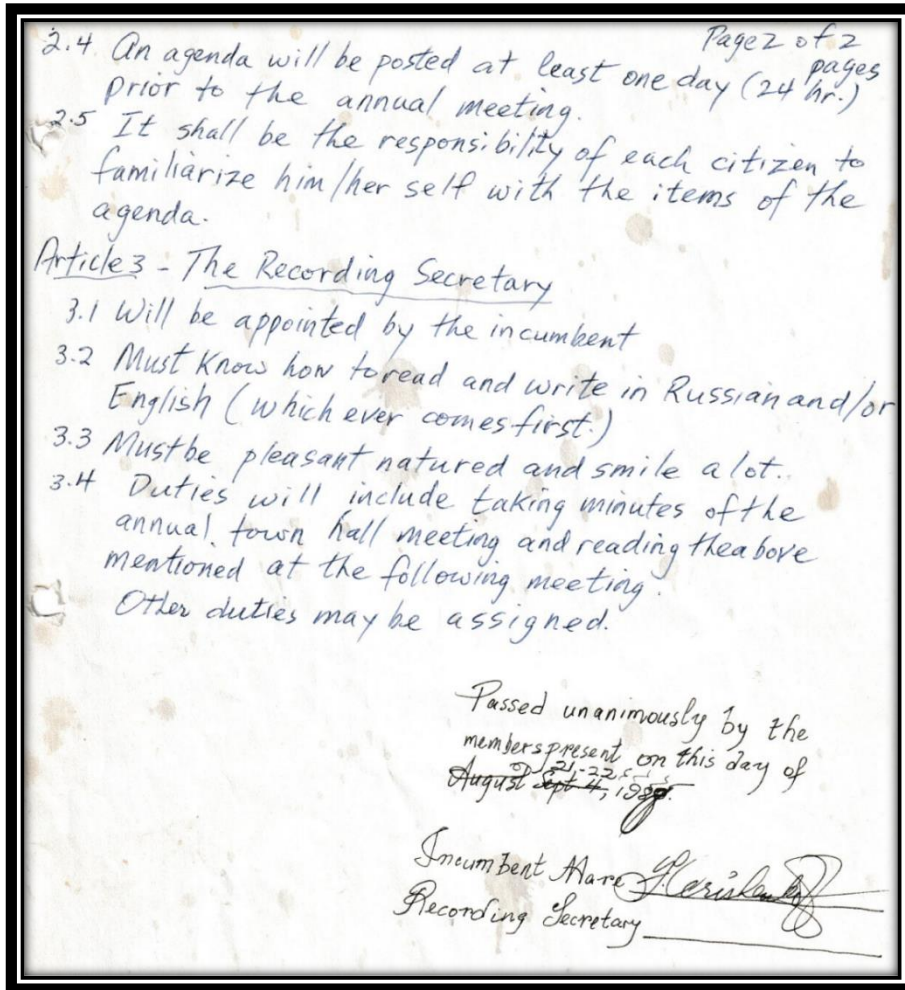 Page 2 of 2
pages
2.4 An agenda will be posted at least one day (24 hr.)
prior to the annual meeting.
2.5 It shall be the responsibility of each citizen to
familiarize him/her self with the items of the
agenda.
Article 3 - The Recording Secretary
3.1 Will be appointed by the incumbent
3.2 Must Know how to read and write in Russian and/or
English (which ever comes first.)
3.3 Must be pleasant natured and smile a lot..
3.4 Duties will include taking minutes of the
annual town hall meeting and reading the above
mentioned at the following meeting.
Other duties may be assigned.
Passed unanimously by the
members present on this day of
21-22
August Sept 4,
Incumbent Mare
Recording Secretary